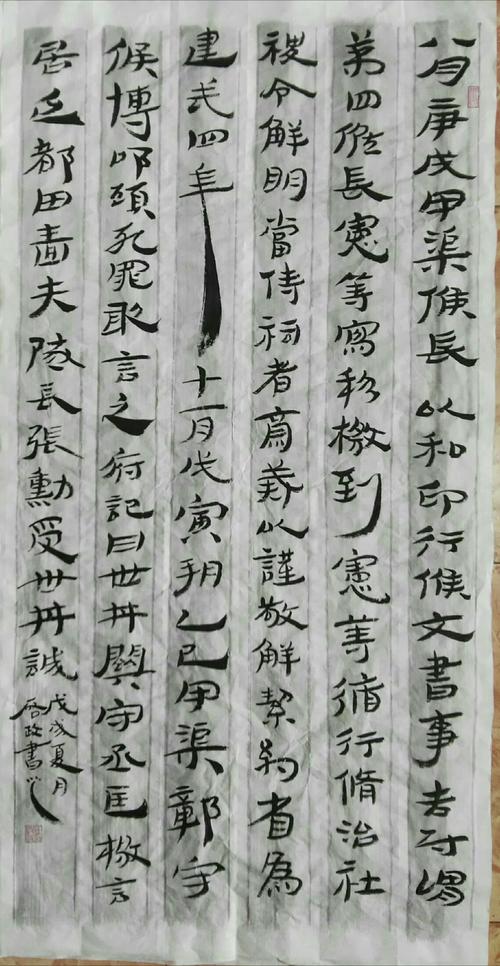 八月庚戌甲渠候長以私印行候文書事告尉謂
第四候長憲等寫移檄到憲等循行脩治社
稷令鮮明當侍祠者齋戒以謹敬鮮絜約省為
建武四年十一月戊寅朔乙巳甲渠鄣守
候博叩頭死罪敢言之府記曰卅井關守丞匡檄言
居延都田嗇夫隧長張勳受卅井誠
戊戌夏月
啓政書